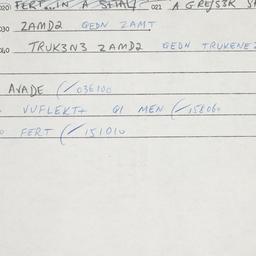 020) FERT IN A 021 A GRE/S3K
030 ZAMD2 GEDN ZAMT
040 TRUK3N3 ZAMD2 GEDN TRUKENE
AVADE (✓036100
VUFLEKT+ GI MEN (✓158060
FERT (✓151010